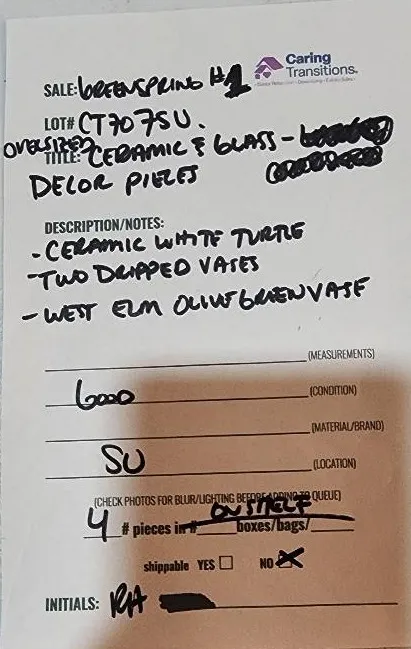 Caring
Transitions
SALE: GREENSPRING #1
LOT# CT707SU.
OVERSIZED
TITLE: CERAMIC & GLASS -
DECOR PIECES
DESCRIPTION/NOTES:
- CERAMIC WHITE TURTLE
- TWO DRIPPED VASES
- WEST ELM OLIVE GREEN VASE
(MEASUREMENTS)
GOOD (CONDITION)
(MATERIAL/BRAND)
SU (LOCATION)
(CHECK PHOTOS FOR BLUR/LIGHTING BEFORE ADDING TO QUEUE)
ON SHELF
4 # pieces in # boxes/bags/
shippable YES NO
INITIALS: RH